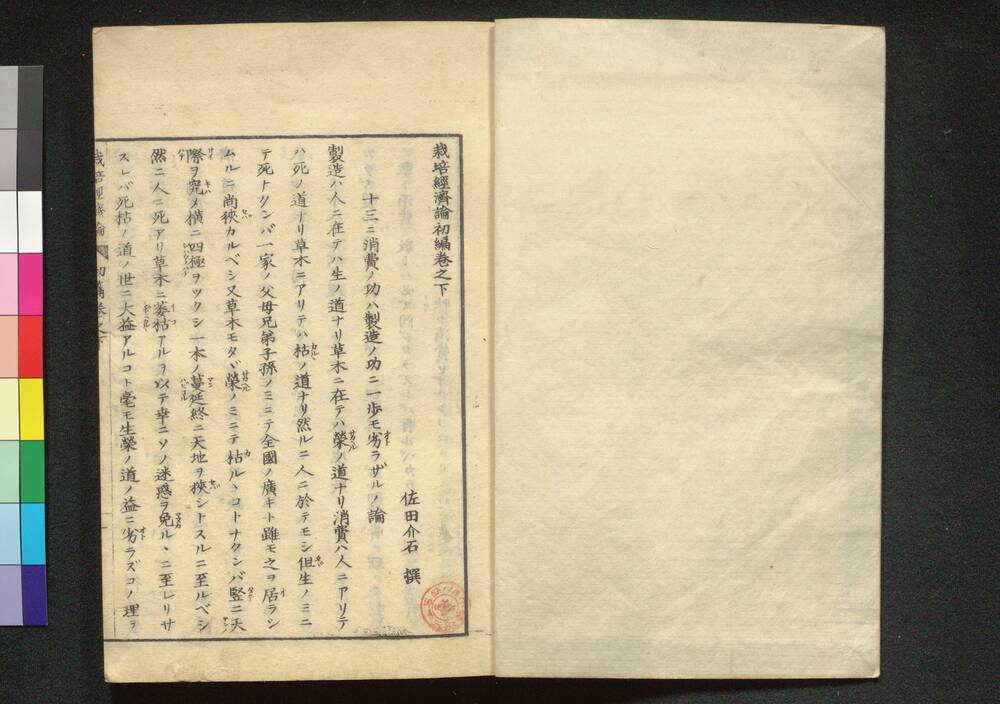 栽培經濟論初編卷之下
佐田介石 撰
十三ニ消費ノ功ハ製造ノ功ニ一歩モ劣ラザルノ論
製造ハ人ニ在テハ生ノ道ナリ草木ニ在テハ榮ノ道ナリ消費ハ人ニアリテ
ハ死ノ道ナリ草木ニアリテハ枯ノ道ナリ然ルニ人ニ於テモシ但生ノミニ
テ死トクンバ一家ノ父母兄弟子孫ノミニテ全國ノ廣キト雖モ之ヲ居ラシ
ムルニ尚狹カルベシ又草木モタヾ榮ノミニテ枯ルヽコトナクンバ竪ニ天
際ヲ究メ横ニ四極ヲツクシ一本ノ蔓延終ニ天地ヲ狹シトスルニ至ルベシ
然ニ人ニ死アリ草木ニ萎枯アルヲ以テ幸ニソノ迷惑ヲ免ルヽニ至レリサ
スレバ死枯ノ道ノ世ニ大益アルコト毫モ生榮ノ道ノ益ニ劣ラズコノ理ヲ
栽培經濟論 初編卷之下